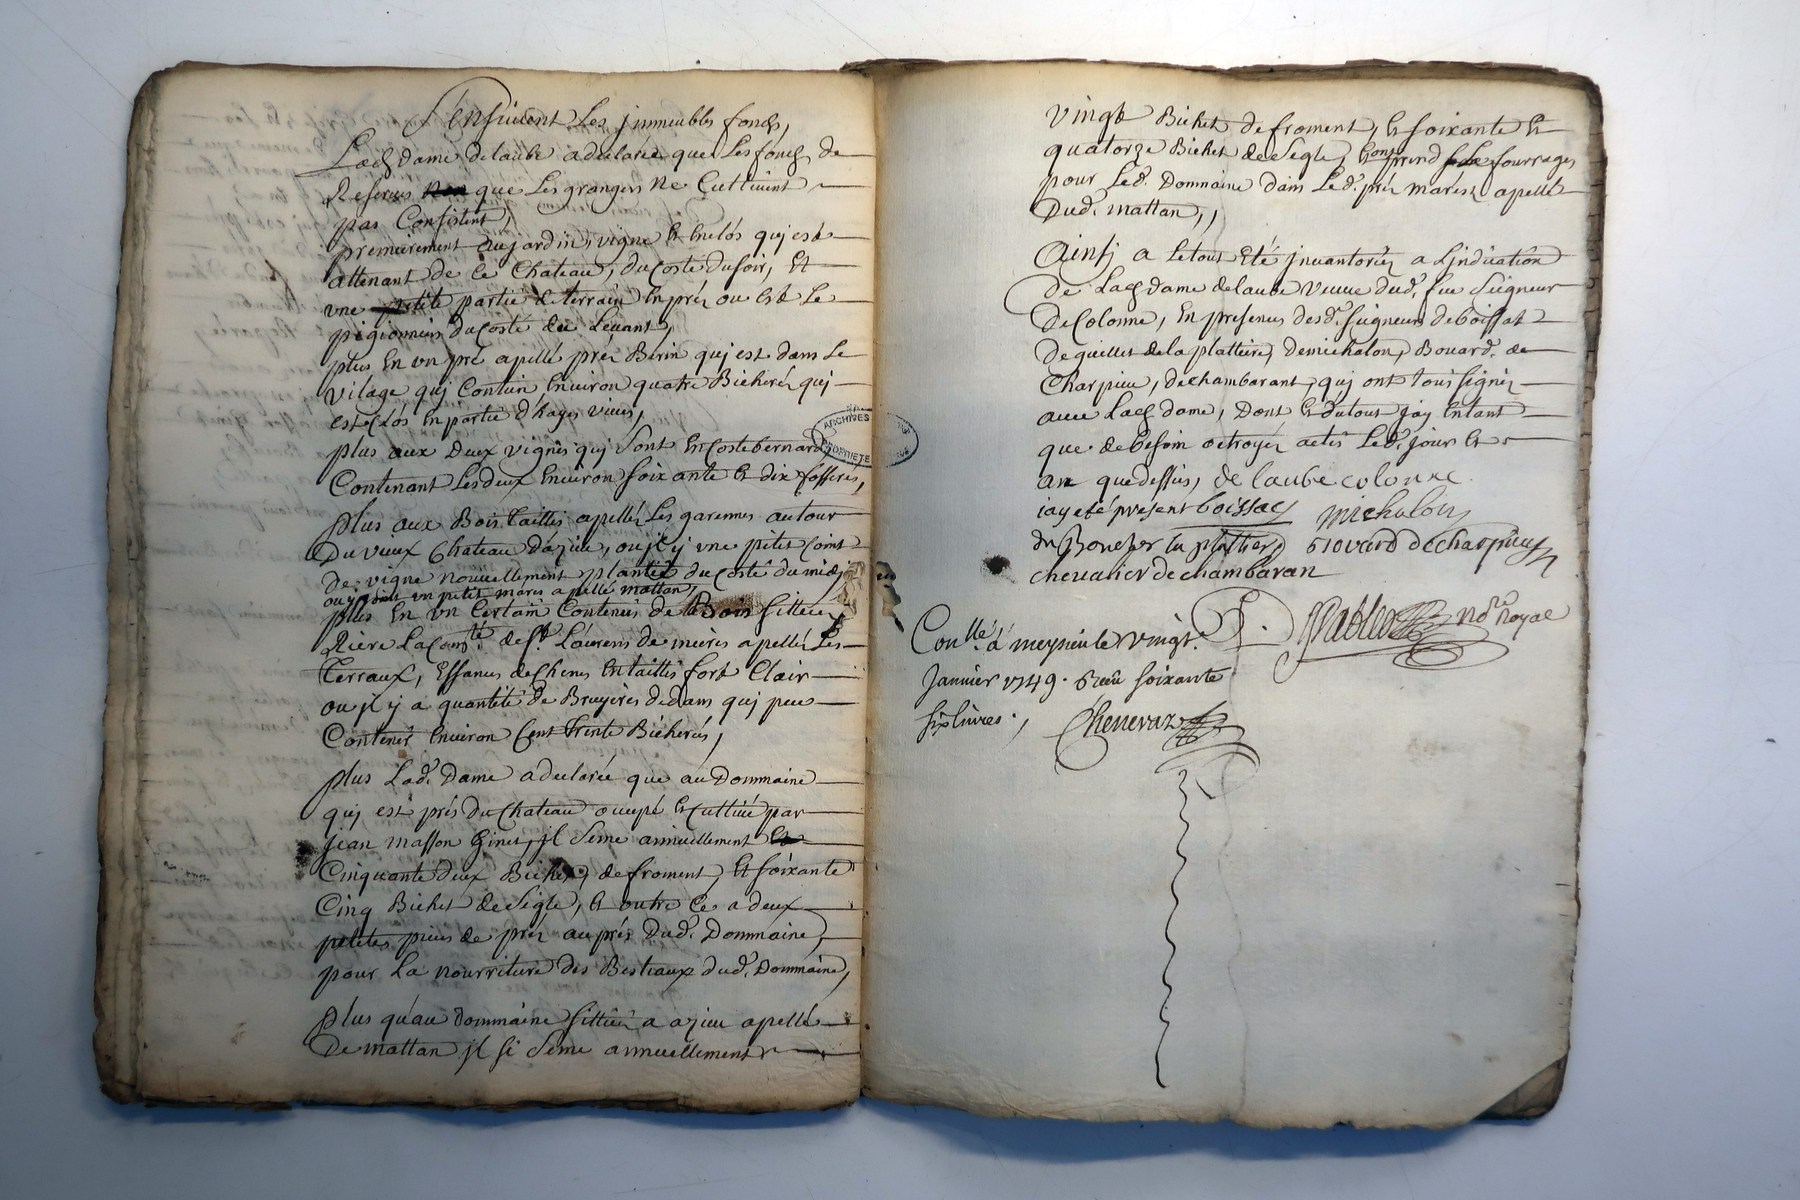 S'ensuivent Les jmmeubles fonds,
Lad. dame delaube adeclaré que Les fonds de
Reserves que Les grangers Ne Cultivent
pas Consistent,
premierement aujardin, vigne Et Enclos quj est
attenant de Ce Chateau, du Costé du soir, Et
une petite partie de terrain En préz ou Est Le
pigionnier du Costé du Levant,
plus En un pré apellé préz Berin quj est dans Le
vilage quj Contien Environ quatre Bicheréz quj
est Clós En partie d'hayes vives,
plus aux Deux vignes quj Sont En Coste bernard,
Contenant Les deux Environ soixante Et dix fosserés,
plus aux Bois taillis apelléz Les garennes autour
Du vieux Chateau d'azieu, ou jl y a une petite Coint
de vigne nouvellement planteé du Costé du midj
un petit marés apellé mattan,
plus En un Certain Contenus de Bois sittuéz
Riere La Conté de St. Laurens de meures apelléz Les
Terraux, Essance de Chenes En taillis fort Clair
ou jl y a quantité de Bruyeres dedans quj peut
Contenir Environ Cent trente Bicherés,
plus Lad. Dame adeclarée que au Dommaine
quj est prés du Chateau occupé Et Cultivé par
jean masson Ginet, jl seme annuellement
Cinquante deux Bichets de froment, Et soixante
Cinq Bichet de Segle, Et outre Ce a deux
petites pieces de préz auprés Dud. Dommaine,
pour La nourriture des Bestiaux dud. Dommaine,
plus qu'au dommaine sittué a azieu apellé
De mattan jl se Seme annuellement
ARCHIVES
PROPRIETE
vingt Bichet de froment, Et soixante Et
quatorze Bichet de Segle, Et on prend Les fourrages
pour Led. Dommaine dans Led. préz marest apellé
Dud. mattan,,
Ainsj a Le tout Eté jnvantoriéz a Ljndication
De Lad. dame delaube veuve dud. feu Seigneur
De Colonne, En presences desd. seigneurs de boissat
De quillet de la plattiere, de michalon, Bovard. de
Charpieu, de chambarant, quj ont tous signéz
avec Lad. dame, Dont Et du tout jay En tant
que de besoin octroyéz actes Led. jour Et
an que dessus, de laube colonne
iay eté present boissac michalon
du Boucher la plattiere bovard decharpieux
chevalier de chambaran
Pableo Nore. Royal
Conllé. á meyzieu le vingt.
Janvier 1749. Reçu soixante
six livres.,
Chenevaz